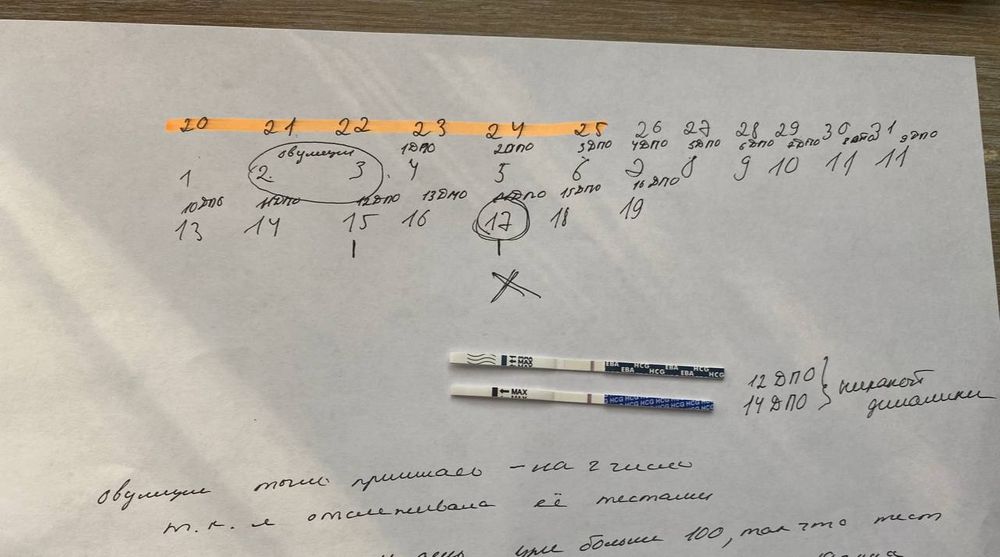 20 21 22 23 24 25 26 27 28 29 30 31
овуляция 1ДПО 2ДПО 3ДПО 4ДПО 5ДПО 6ДПО 9ДПО
1 2. 3. 4 5 6 8 9 10 11 11
10ДПО 12ДПО 15ДПО 16ДПО
13 14 15 16 17 18 19
MAX
EBA HCG EBA HCG EBA HCG
MAX
HCG HCG HCG HCG HCG HCG
12 ДПО
14 ДПО
никакой динамики
овуляция точно пришлась – на 2 число
т.к. я отслеживала её тестами
день уже больше 100, так что тест